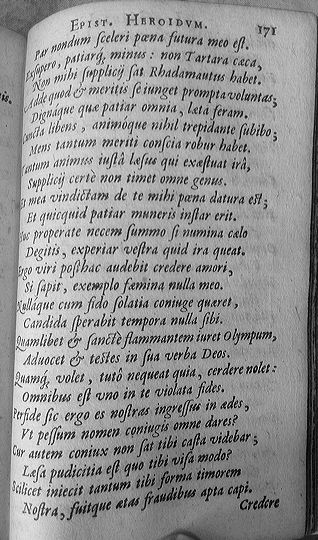 EPIST. HEROIDVM. 171
Par nondum sceleri pœna futura meo est.
Exsupero, patiarq́, minus: non Tartara cæca,
Non mihi supplicij sat Rhadamantus habet.
Adde quod & meritis se iunget prompta voluntas;
Dignáque quæ patiar omnia, læta feram.
Cuncta libens, animóque nihil trepidante subibo;
Mens tantum meriti conscia robur habet.
Tantum animus iustâ læsus qui exæstuat irâ,
Supplicij certè non timet omne genus.
Et mea vindictam de te mihi pœna datura est;
Et quicquid patiar muneris instar erit.
Huc properate necem summo si numina cælo
Degitis, experiar vestra quid ira queat.
Ergo viri posthac audebit credere amori,
Si sapit, exemplo fæmina nulla meo.
Nulláque cum fido solatia coniuge quæret,
Candida sperabit tempora nulla sibi.
Quamlibet & sanctè flammantem iuret Olympum,
Aduocet & testes in sua verba Deos.
Quamq́, volet, tutò nequeat quia, cerdere nolet:
Omnibus est vno in te violata fides.
Perfide sic ergo es nostras ingressus in ædes,
Vt pessum nomen coniugis omne dares?
Cur autem coniux non sat tibi casta videbar;
Læsa pudicitia est quo tibi visa modo?
Scilicet iniecit tantum tibi forma timorem
Nostra, fuitque ætas fraudibus apta capi.
Credere